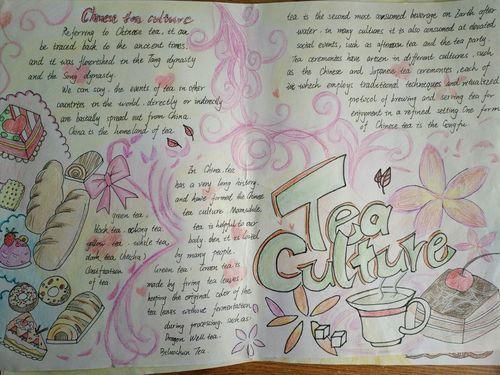 Chinese tea culture
Referring to Chinese tea, it can
be traced back to the ancient times.
and it was flourished in the Tang dynasty
and the Song dynasty.
We can say, the events of tea in other
countries in the world, directly or indirectly
are basically spread out from China.
China is the homeland of tea.
Green tea.
black tea. oolong tea.
yellow tea. white tea.
dark tea.
Classification
of tea
In China, tea
has a very long history.
and have formed the Chinese
tea culture. Meanwhile.
tea is helpful to our
body. then it is loved
by many people.
Green tea: Green tea is
made by firing tea leaves.
keeping the original color of the
tea leaves without fermentation
during processing. such as:
Dragon Well tea.
Biluochun Tea.
tea is the second most consumed beverage on Earth after
water. in many cultures it is also consumed at elevated
social events, such as afternoon tea and the tea party.
Tea ceremonies have arisen in different cultures, such
as the Chinese and Japanese tea ceremonies, each of
which employs traditional techniques and ritualized
protocol of brewing and serving tea for
enjoyment in a refined setting. One form
of Chinese tea is the Gongfu
Tea
Culture